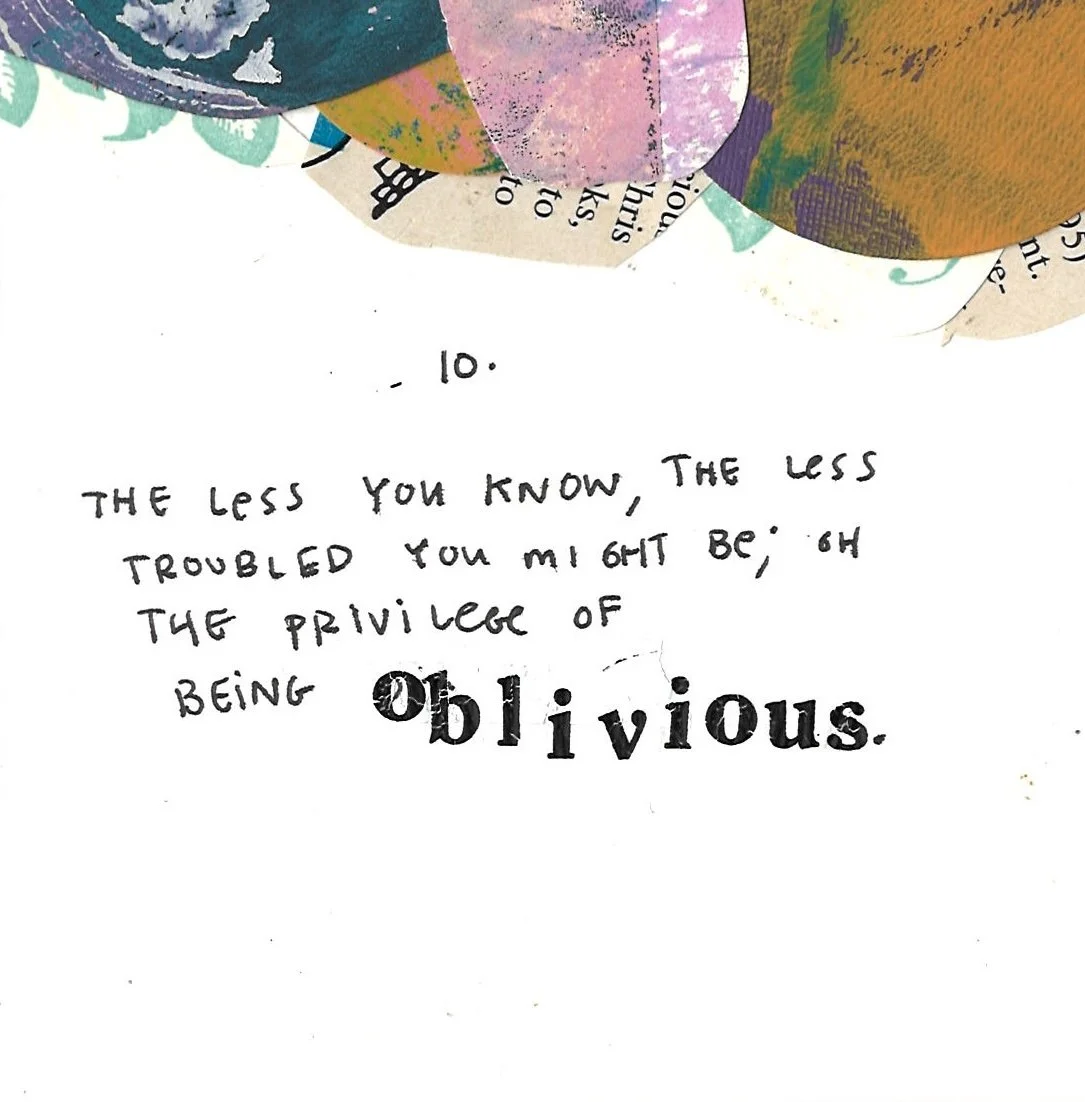 to
to
ks,
hris
iou
nt.
e-
95)
10.
THE LeSS YOU KNOW, THE LeSS
TROUBLED YOU MIGHT Be; OH
THE PRIViLeGe OF
BEiNG oblivious.